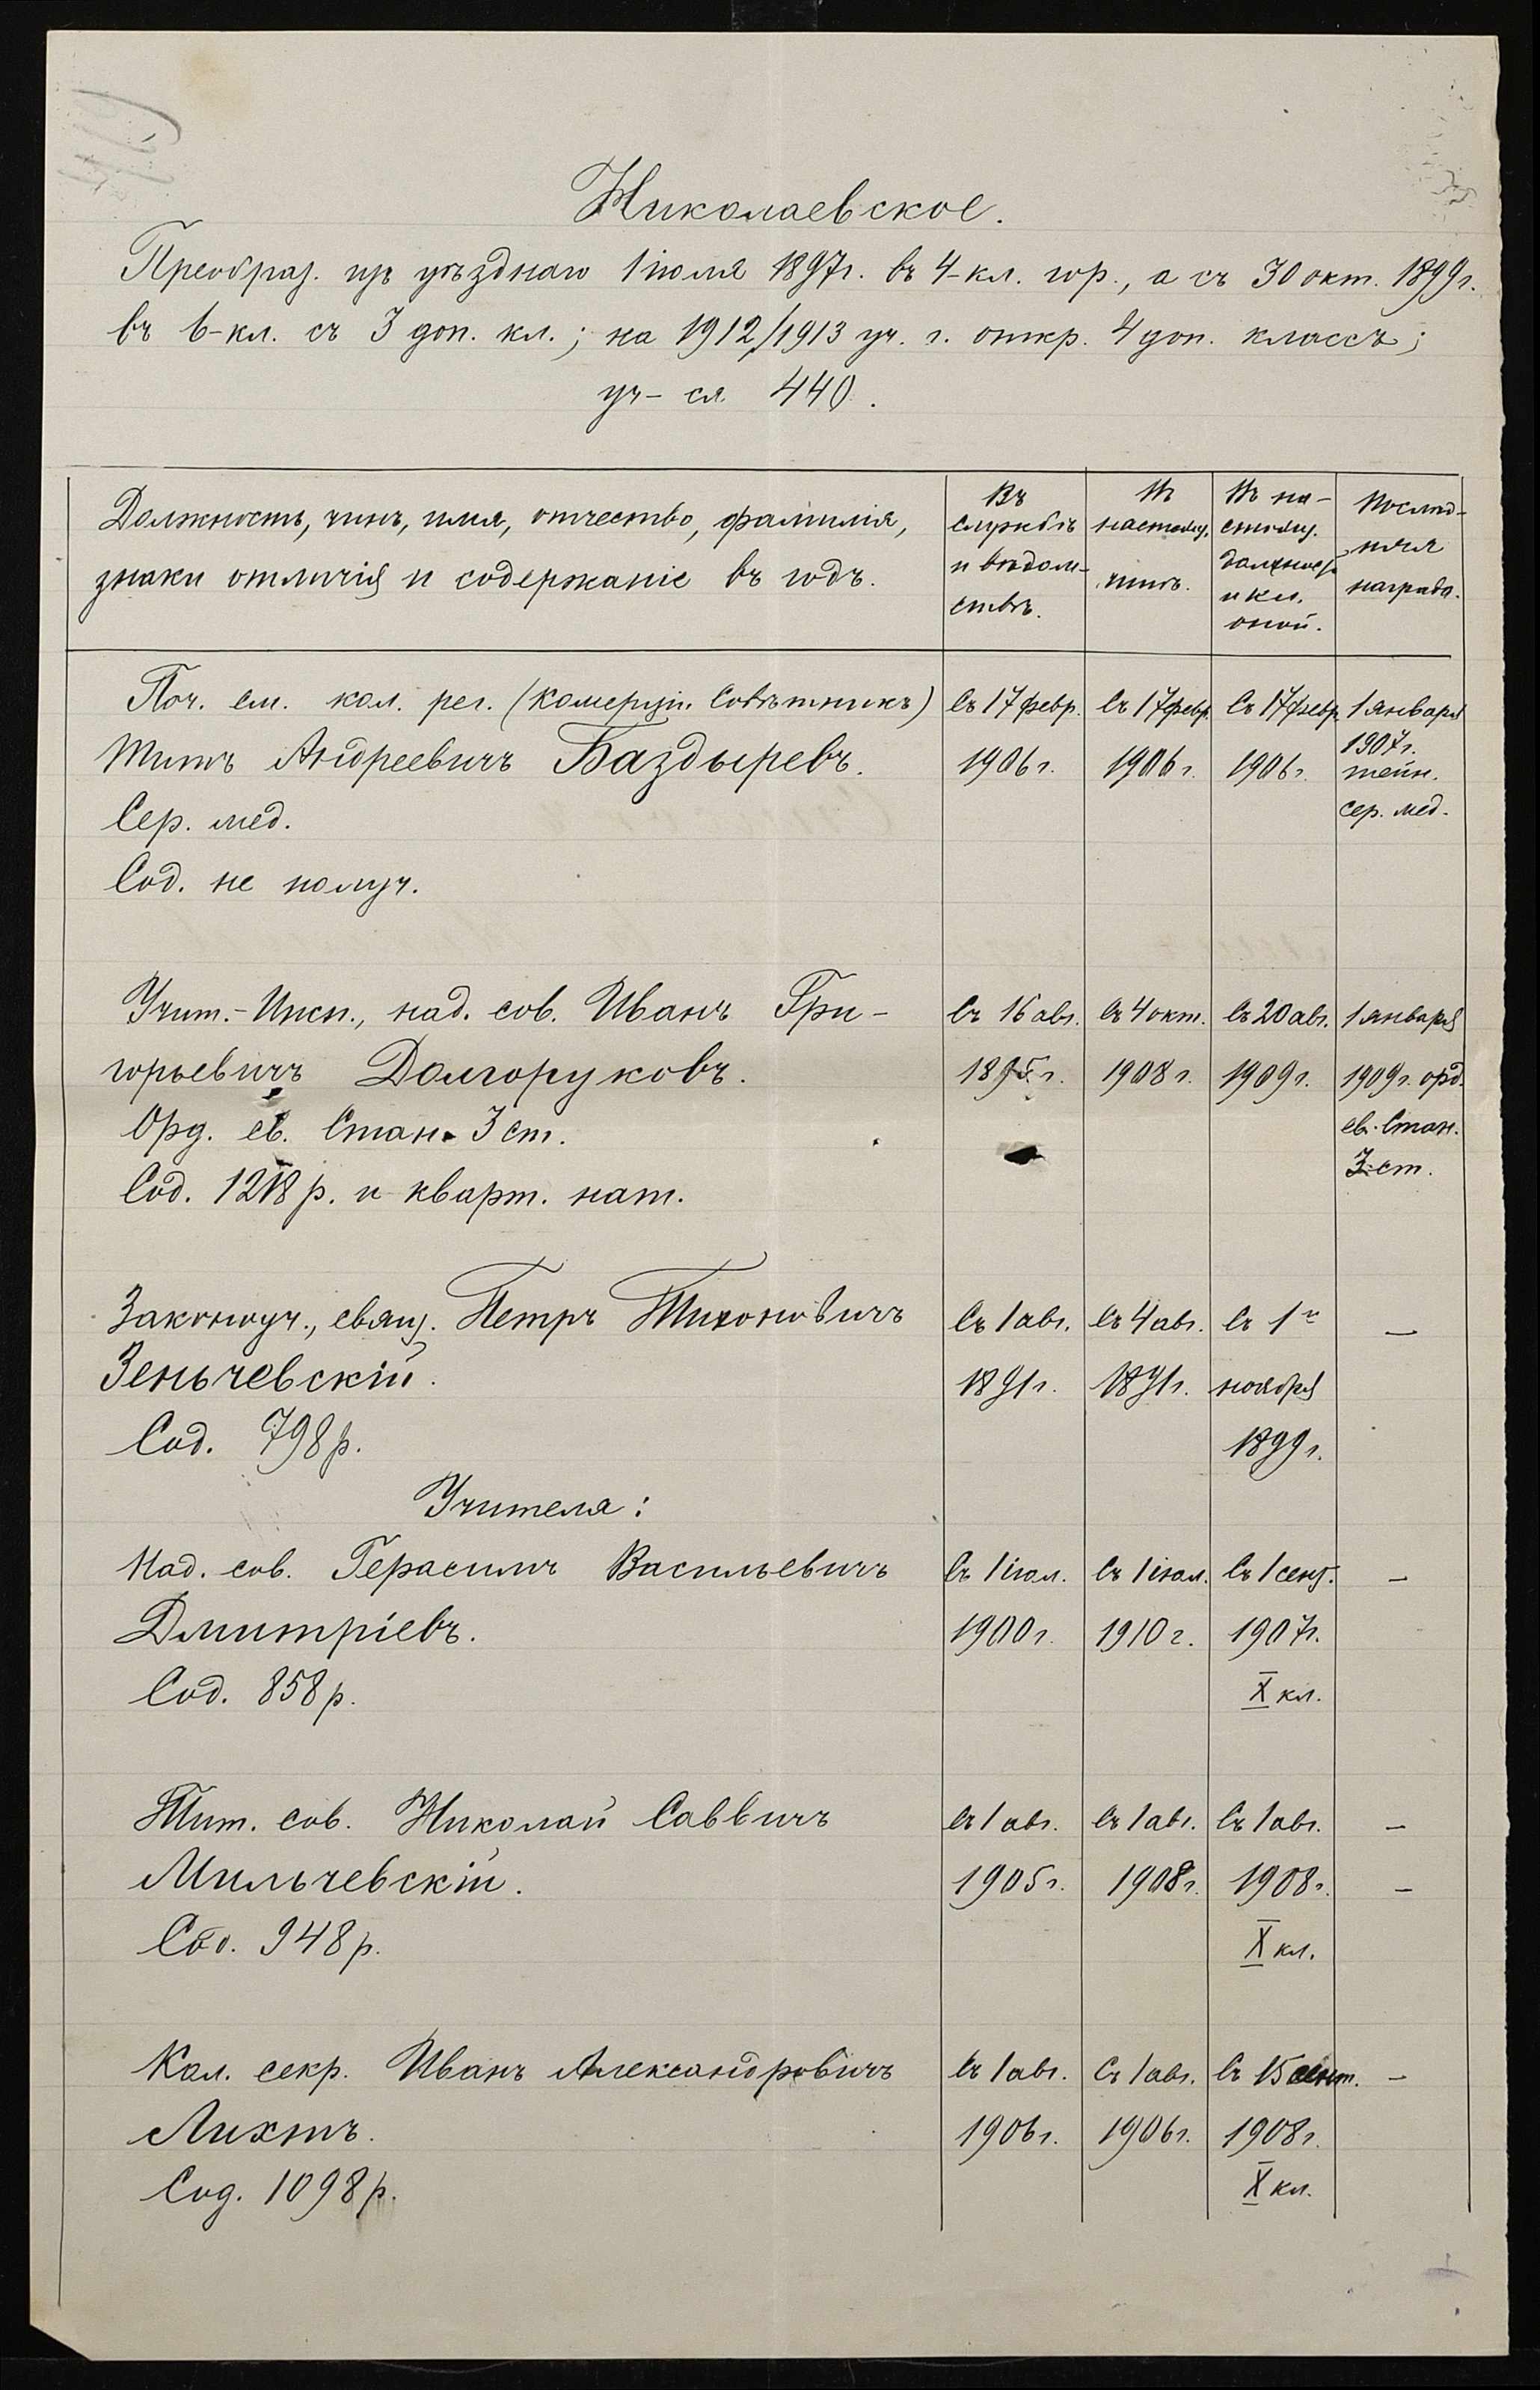 Николаевское.
Преобраз. изъ уѣзднаго 1 іюля 1897 г. въ 4-кл. гор., а съ 30 окт. 1899 г.
въ 6-кл. съ 3 доп. кл.; на 1912/1913 уч. г. откр. 4 доп. классъ;
уч-ся 440.
Должность, чинъ, имя, отчество, фамилія,
знаки отличія и содержаніе въ годъ.
Въ
службѣ
и вѣдом-
ствѣ.
Въ
настоящ.
чинѣ.
Въ на-
стоящ.
должности
и кл.
оной.
Послѣд-
няя
награда.
Поч. см. кол. рег. (Комерціи Совѣтникъ)
Титъ Андреевичъ Баздыревъ.
Сер. мед.
Сод. не получ.
Съ 17 февр.
1906 г.
Съ 17 февр.
1906 г.
Съ 17 февр.
1906 г.
1 января
1907 г.
шейн.
сер. мед.
Учит.-Инсп., над. сов. Иванъ Гри-
горьевичъ Долгоруковъ.
Орд. св. Стан. 3 ст.
Сод. 1218 р. и кварт. нат.
Съ 16 авг.
1895 г.
Съ 4 окт.
1908 г.
Съ 20 авг.
1909 г.
1 января
1909 г. орд.
св. Стан.
3 ст.
Законоуч., свящ. Петръ Тихоновичъ
Зеньчевскій.
Сод. 798 р.
Съ 1 авг.
1891 г.
Съ 4 авг.
1891 г.
Съ 1 г
ноября
1899 г.
—
Учителя:
Над. сов. Герасимъ Васильевичъ
Дмитріевъ.
Сод. 858 р.
Съ 1 іюл.
1900 г.
Съ 1 іюл.
1910 г.
Съ 1 сент.
1907 г.
X кл.
—
Тит. сов. Николай Саввичъ
Мильчевскій.
Сод. 948 р.
Съ 1 авг.
1905 г.
Съ 1 авг.
1908 г.
Съ 1 авг.
1908 г.
X кл.
—
—
Кол. секр. Иванъ Александровичъ
Лихтъ.
Сод. 1098 р.
Съ 1 авг.
1906 г.
Съ 1 авг.
1906 г.
Съ 15 сент.
1908 г.
X кл.
—